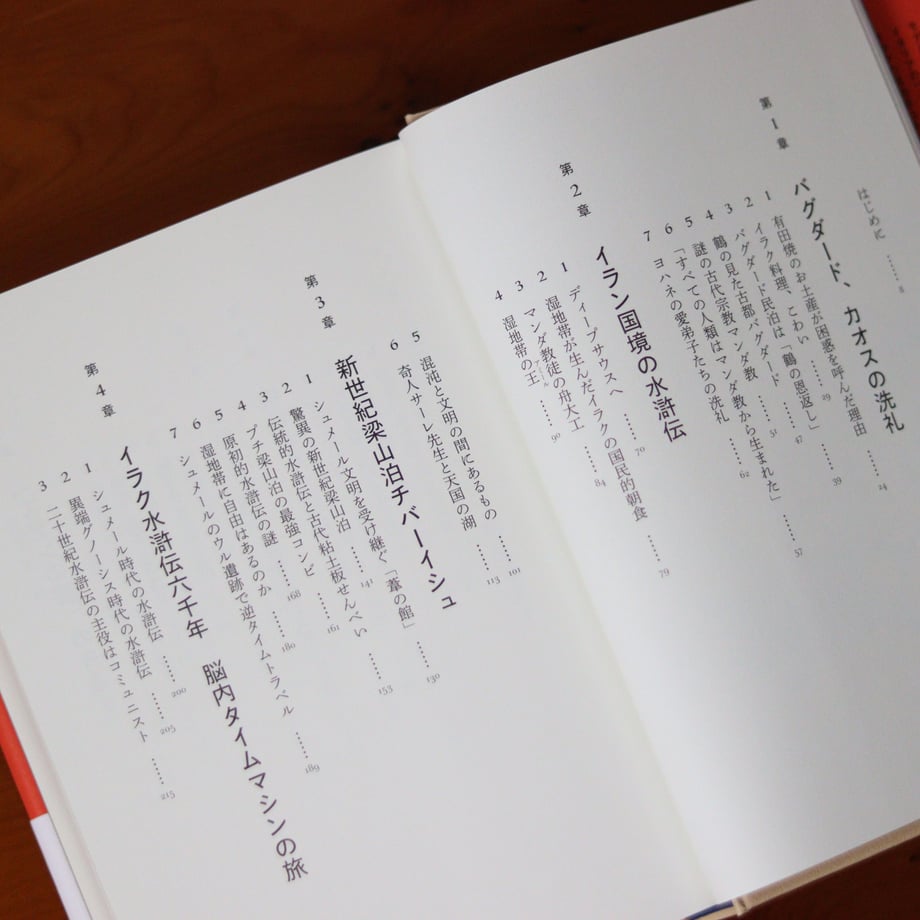 はじめに …… 8
第1章 バグダード、カオスの洗礼
1 有田焼のお土産が困惑を呼んだ理由 …… 24
2 イラク料理、こわい …… 29
3 バグダード民泊は「鶴の恩返し」 …… 39
4 鶴の見た古都バグダード …… 47
5 謎の古代宗教マンダ教 …… 51
6 「すべての人類はマンダ教から生まれた」 …… 57
7 ヨハネの愛弟子たちの洗礼 …… 62
第2章 イラン国境の水滸伝
1 ディープサウスへ …… 70
2 湿地帯が生んだイラクの国民的朝食 …… 79
3 マンダ教徒の舟大工 …… 84
4 湿地帯の王 …… 90
5 混沌と文明の間にあるもの …… 101
6 奇人サーレ先生と天国の湖 …… 113
第3章 新世紀梁山泊チバーイシュ
1 シュメール文明を受け継ぐ「葦の館」 …… 130
2 驚異の新世紀梁山泊 …… 141
3 伝統的水滸伝と古代粘土板せんべい …… 153
4 プチ梁山泊の最強コンビ …… 161
5 原初的水滸伝の謎 …… 168
6 湿地帯に自由はあるのか …… 180
7 シュメールのウル遺跡で逆タイムトラベル …… 189
第4章 イラク水滸伝六千年 脳内タイムマシンの旅
1 シュメール時代の水滸伝 …… 200
2 異端グノーシス時代の水滸伝 …… 205
3 二十世紀水滸伝の主役はコミュニスト …… 215